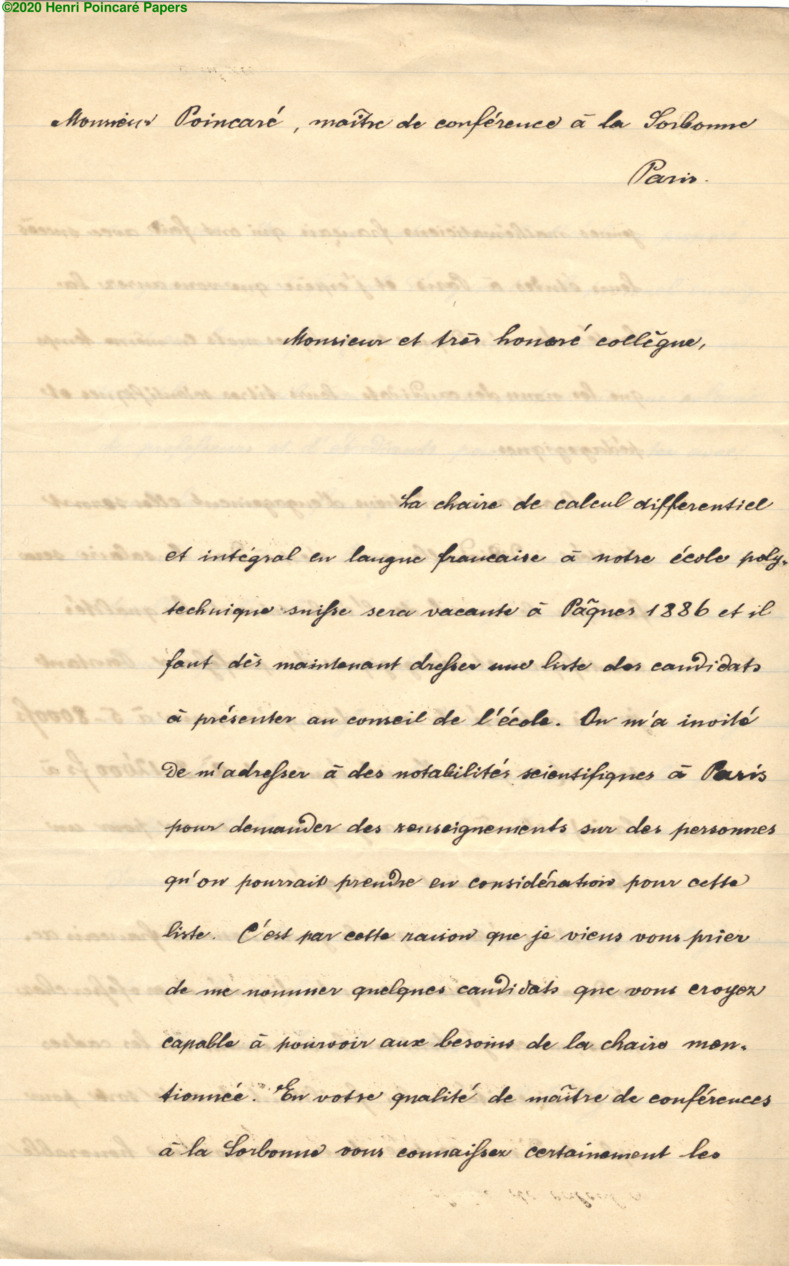 ©2020 Henri Poincaré Papers
Monsieur Poincaré, maître de conférence à la Sorbonne
Paris.
Monsieur et très honoré collègue,
La chaire de calcul differentiel
et intégral en langue francaise à notre école poly-
technique suisse sera vacante à Pâques 1886 et il
faut dès maintenant dresser une liste des candidats
à présenter au conseil de l'école. On m'a invité
de m'adresser à des notabilités scientifiques à Paris
pour demander des renseignements sur des personnes
qu'on pourrait prendre en considération pour cette
liste. C'est par cette raison que je viens vous prier
de me nommer quelques candidats que vous croyez
capable à pourvoir aux besoins de la chaire men-
tionnée. En votre qualité de maître de conférences
à la Sorbonne vous connaissez certainement les